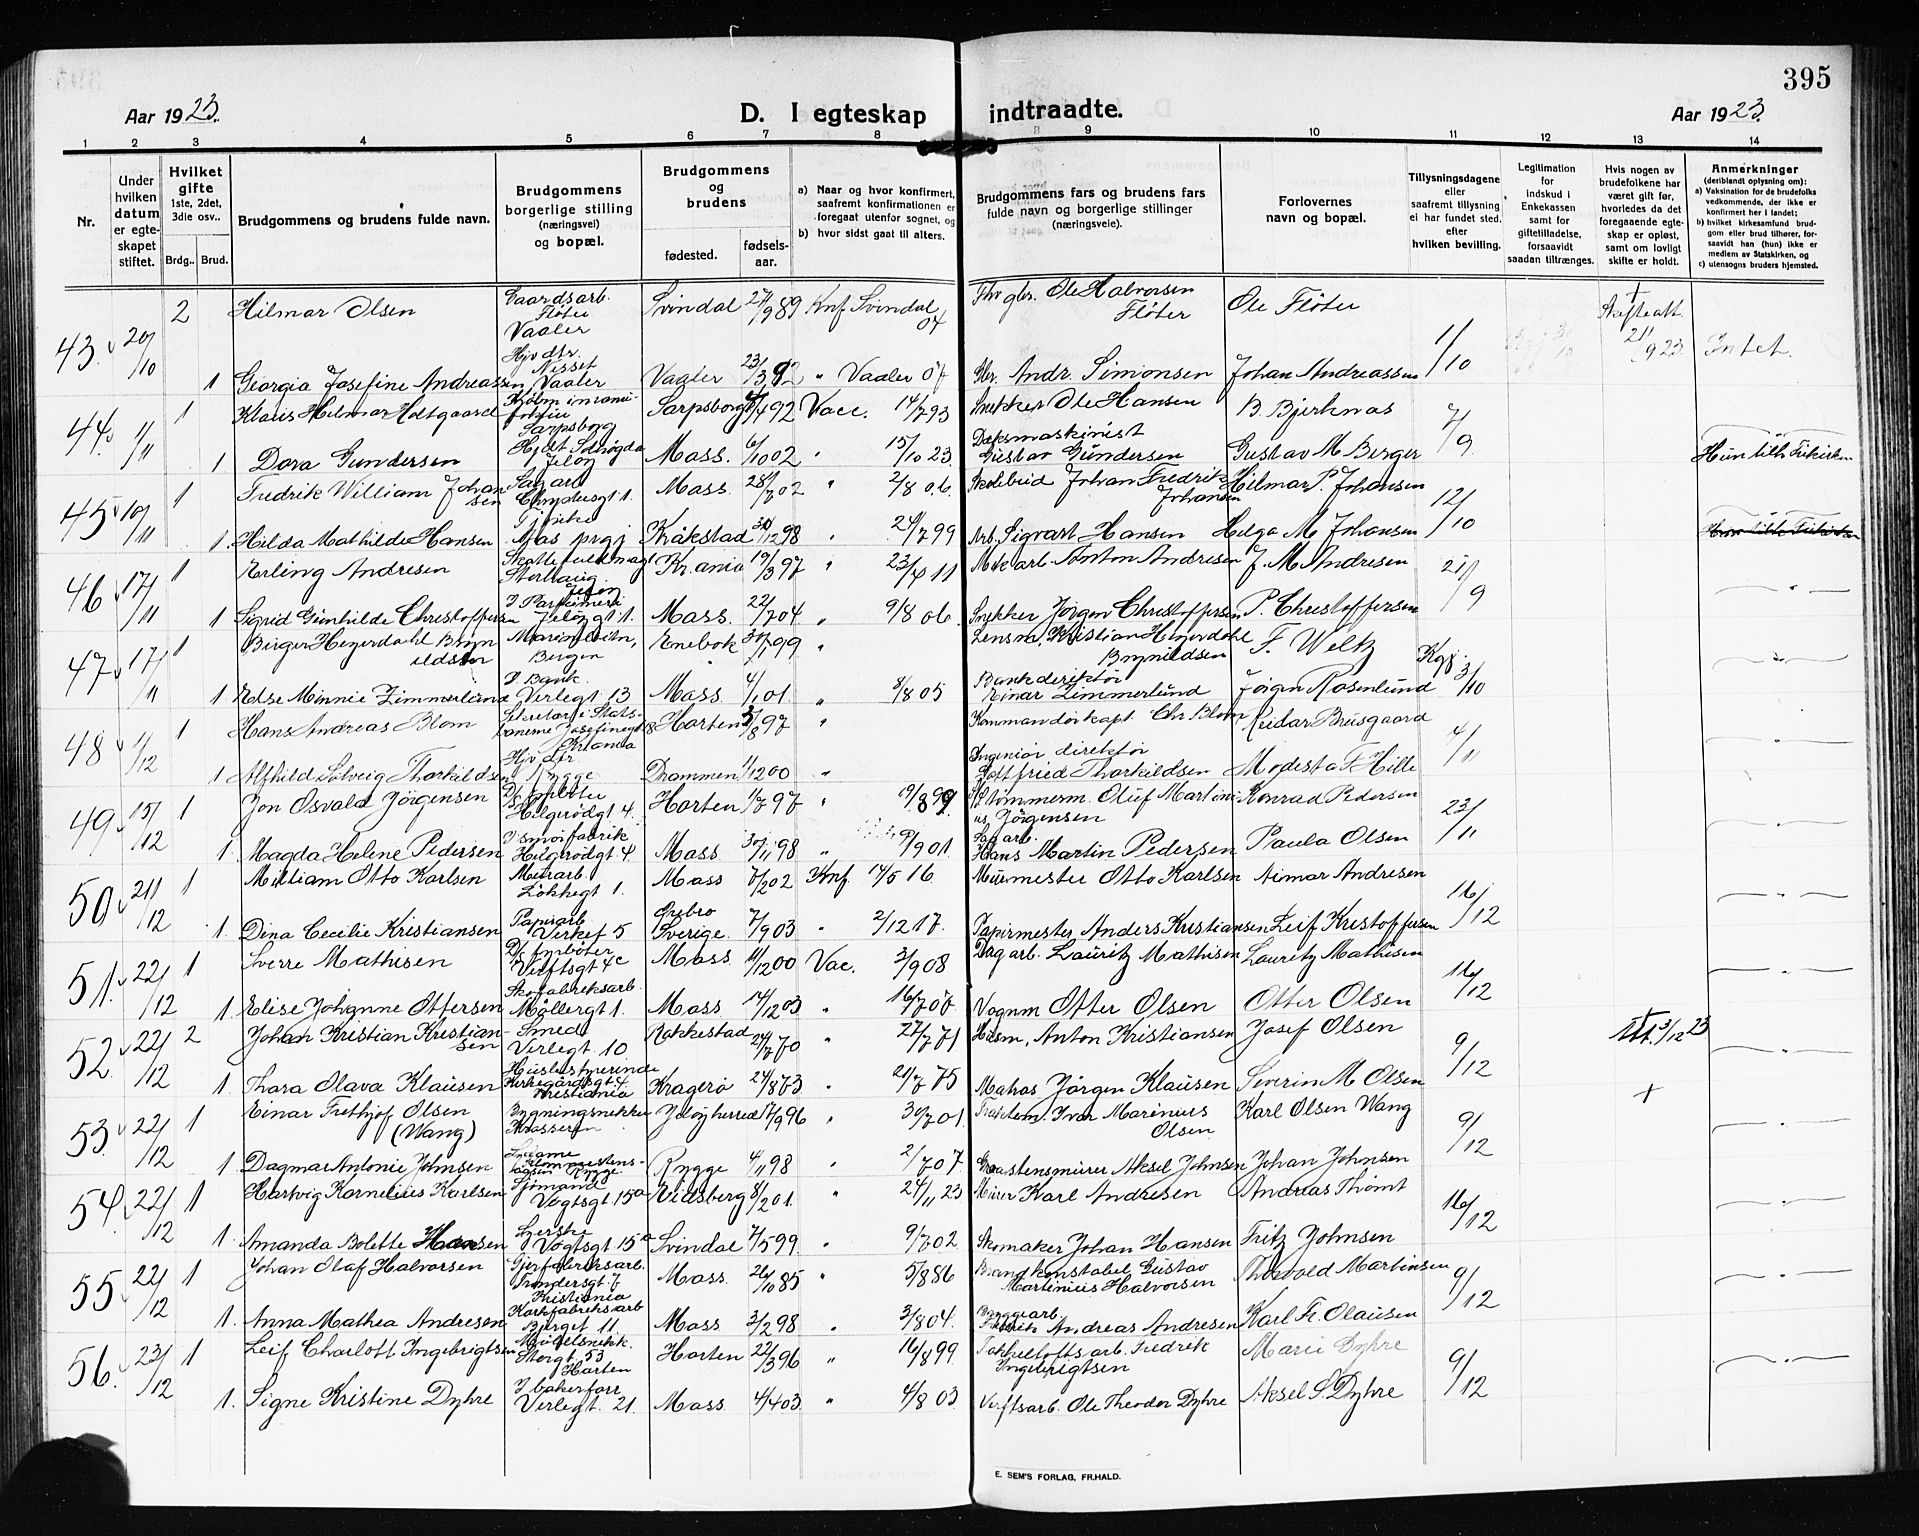 395
Aar 1923.
D. I egteskap indtraadte.
Aar 1923.
1 2 3 4 5 6 7 8 8 9 10 11 12 13 14
Nr.
Under hvilken datum er egteskapet stiftet.
Hvilket gifte 1ste, 2det, 3die osv..
Brdg.. Brud.
Brudgommens og brudens fulde navn.
Brudgommens borgerlige stilling (næringsvei) og bopæl.
Brudgommens og brudens
fødested.
fødselsaar.
a) Naar og hvor konfirmert, saafremt konfirmationen er foregaat utenfor sognet, og
b) hvor sidst gaat til alters.
Brudgommens fars og brudens fars fulde navn og borgerlige stillinger (næringsveie).
Forlovernes navn og bopæl.
Tillysningsdagene eller saafremt tillysning ei har fundet sted, efter hvilken bevilling.
Legitimation for indskud i Enkekassen samt for giftetilladelse, forsaavidt saadan tiltrænges.
Hvis nogen av brudefolkene har været gift før, hvorledes da det foregaaende egteskap er opløst, samt om lovligt skifte er holdt.
Anmerkninger (deriblandt oplysning om):
a) Vaksination for de brudefolks vedkommende, der ikke er konfirmert her i landet;
b) hvilket kirkesamfund brudgom eller brud tilhører, forsaavidt han (hun) ikke er medlem av Statskirken, og
c) utensogns bruders hjemsted.
43. 20/10 2 Hilmar Olsen Gaardsarb. Fløter Vaaler Svindal 27/9 89 Knf Svindal 04 Ole Halvorsen Fløter Ole Fløter 1/10 Skifteatt. 21/9 23. Intet.
1 Georgia Josefine Andreassen Hjv dtr. Nisset Vaaler Vaaler 23/3 92 " Vaaler 07 Gbr. Andr. Simonsen Johan Andreassen
44. 1/11 1 Klaus Hilmar Holtgaard Sarpsborg Sarpsborg 4/4 92 Vacc. 14/7 93 Snekker Ole Hansen B. Bjerknas 7/9
1 Dora Gundersen Jeløy Mass. 6/10 02 " 15/10 23. Dæksmaskinist Gustav Gundersen Gustav M Berger Hun tilh Frikirken
45 10/11 1 Fredrik William Johansen Sagarb Mass. 28/7 02 " 2/8 06. Skolebud Johan Fredrik Johansen Hilmar P. Johansen 12/10
1. Hilda Mathilde Hansen Tjnske Kråkstad 30/12 98 " 24/7 99 Arb. Sigvart Hansen Helga M Johansen
46 17/11 1 Erling Andresen Storhaug. Jeløy Kr.ania 19/3 97 " 23/4 11 Mek arb. Anton Andresen J. M Andresen 21/9
1 Sigrid Gunhilde Christoffersen Jeløgt 1. Mass. 22/7 04. " 9/8 06. Snekker Jørgen Christoffersen P. Christoffersen
47 17/11 1 Birger Heyerdahl Brynildsen Bergen Enebok 30/1 99 " Lensm. Kristian Heyerdahl Brynildsen F. Weltz Kgj. 3/10
1 Else Minnie Zimmerlund D Bank. Verlegt 13 Mass 4/1 01. " 8/8 05 Bankdirektør Einar Zimmerlund Jørgen Rosenlund
48 1/12 1 Hans Andreas Blom Sekretær i Statsbanerne Josefinegt 8 Kr.ania Horten 3/8 97 " Kommandørkapt. Chr Blom Reidar Brusgaard 4/11
1 Alfhild Solveig Thorkildsen Hjv dtr Rygge Drammen 1/12 00 " Ingeniør direktør Gotfried Thorkildsen Modesta F Hille
49 15/12 1 Jon Osvald Jörgensen D/S fyrbøter Helgerødgt 4. Horten 1/7 97 " 19/8 99. Tømmerm. Oluf Martinius Jörgensen Konrad Pedersen 23/11
1. Magda Helene Pedersen D smørfabrik Helgerødgt. 4. Mass. 30/11 98 " 9/9 01. Sagarb. Hans Martin Pedersen Paula Olsen
50 21/12 1 William Otto Karlsen Murarb. Løkkegt 1. Mass 7/2 02 Knf. 14/5 16. Murmester Otto Karlsen Aimar Andresen 16/12
1. Dina Cecilie Kristiansen Papirarb Verket 5 Ørebro Sverige. 7/9 03 " 2/12 17. Papirmester Anders Kristiansen Leif Kristoffersen
51. 22/12 1 Sverre Mathisen D/S fyrbøter Verftsgt 4c Mass. 11/12 00 Vac. 3/9 08 Dagarb. Lauritz Mathisen Lauritz Mathisen 16/12
1. Elise Johanne Ottersen Skofabriksarb. Møllergt 1. Mass 14/12 03 " 16/7 07 Vognm Otter Olsen Otter Olsen
52. 22/12 2 Johan Kristian Kristiansen Smed Verlegt 10 Rakkestad 24/7 70 " 27/7 71 Husm. Anton Kristiansen Josef Olsen 9/12 Att. 3/12 23
1. Thora Olava Klausen Husbestyrerinde Kirkegårdsgt 4. Kristiania Kragerø 24/8 73 " 21/7 75 Matros Jørgen Klausen Severin M Olsen +
53. 22/12 1 Einar Frethjof Olsen (Wang) Bygningsnekker Krosseren Jeløy herred 17/9 96 " 30/7 01. Ivar Marinius Olsen Karl Olsen Wang 9/12
1 Dagmar Antonie Johnsen Rygge Rygge 4/11 98 " 2/7 07. Graastensmurer Aksel Johnsen Johan Johnsen
54. 22/12 1 Hartvig Kornelius Karlsen Sjömand Vogtsgt 15a Eidsberg 8/2 01. " 24/11 23 Murer Karl Andresen Andreas Thömt 16/12
1. Amanda Bolette Hansen Syerske Vogtsgt 15a Svindal 7/5 99. " 9/7 02 Skomaker Johan Hansen Fritz Johnsen
55 22/12 1 Johan Olaf Halvorsen Trondersgt 7 Kristiania Mass. 26/10 85 " 5/8 86 Brandkonstabel Gustav Martinius Halvorsen Thorvald Martinsen 9/12
1. Anna Mathea Andresen Korkfabriksarb Bjerget 11. Mass 3/2 98 " 3/8 04. Byggearb. Andreas Andresen Karl Fr. Olausen
56. 23/12 1 Leif Charloft Ingebrigtsen Møbelsnekk. Storgt. 53 Horten Horten 22/3 96 " 16/8 99. Takkeloftsarb. Fredrik Ingebrigtsen Marie Dyhre 9/12
1. Signe Kristine Dyhre I bakerforr Verlegt. 21. Mass 4/4 03. " 4/8 03 Verftsarb. Ole Theodor Dyhre Aksel S. Dyhre
E. SEM'S FORLAG, FR.HALD.